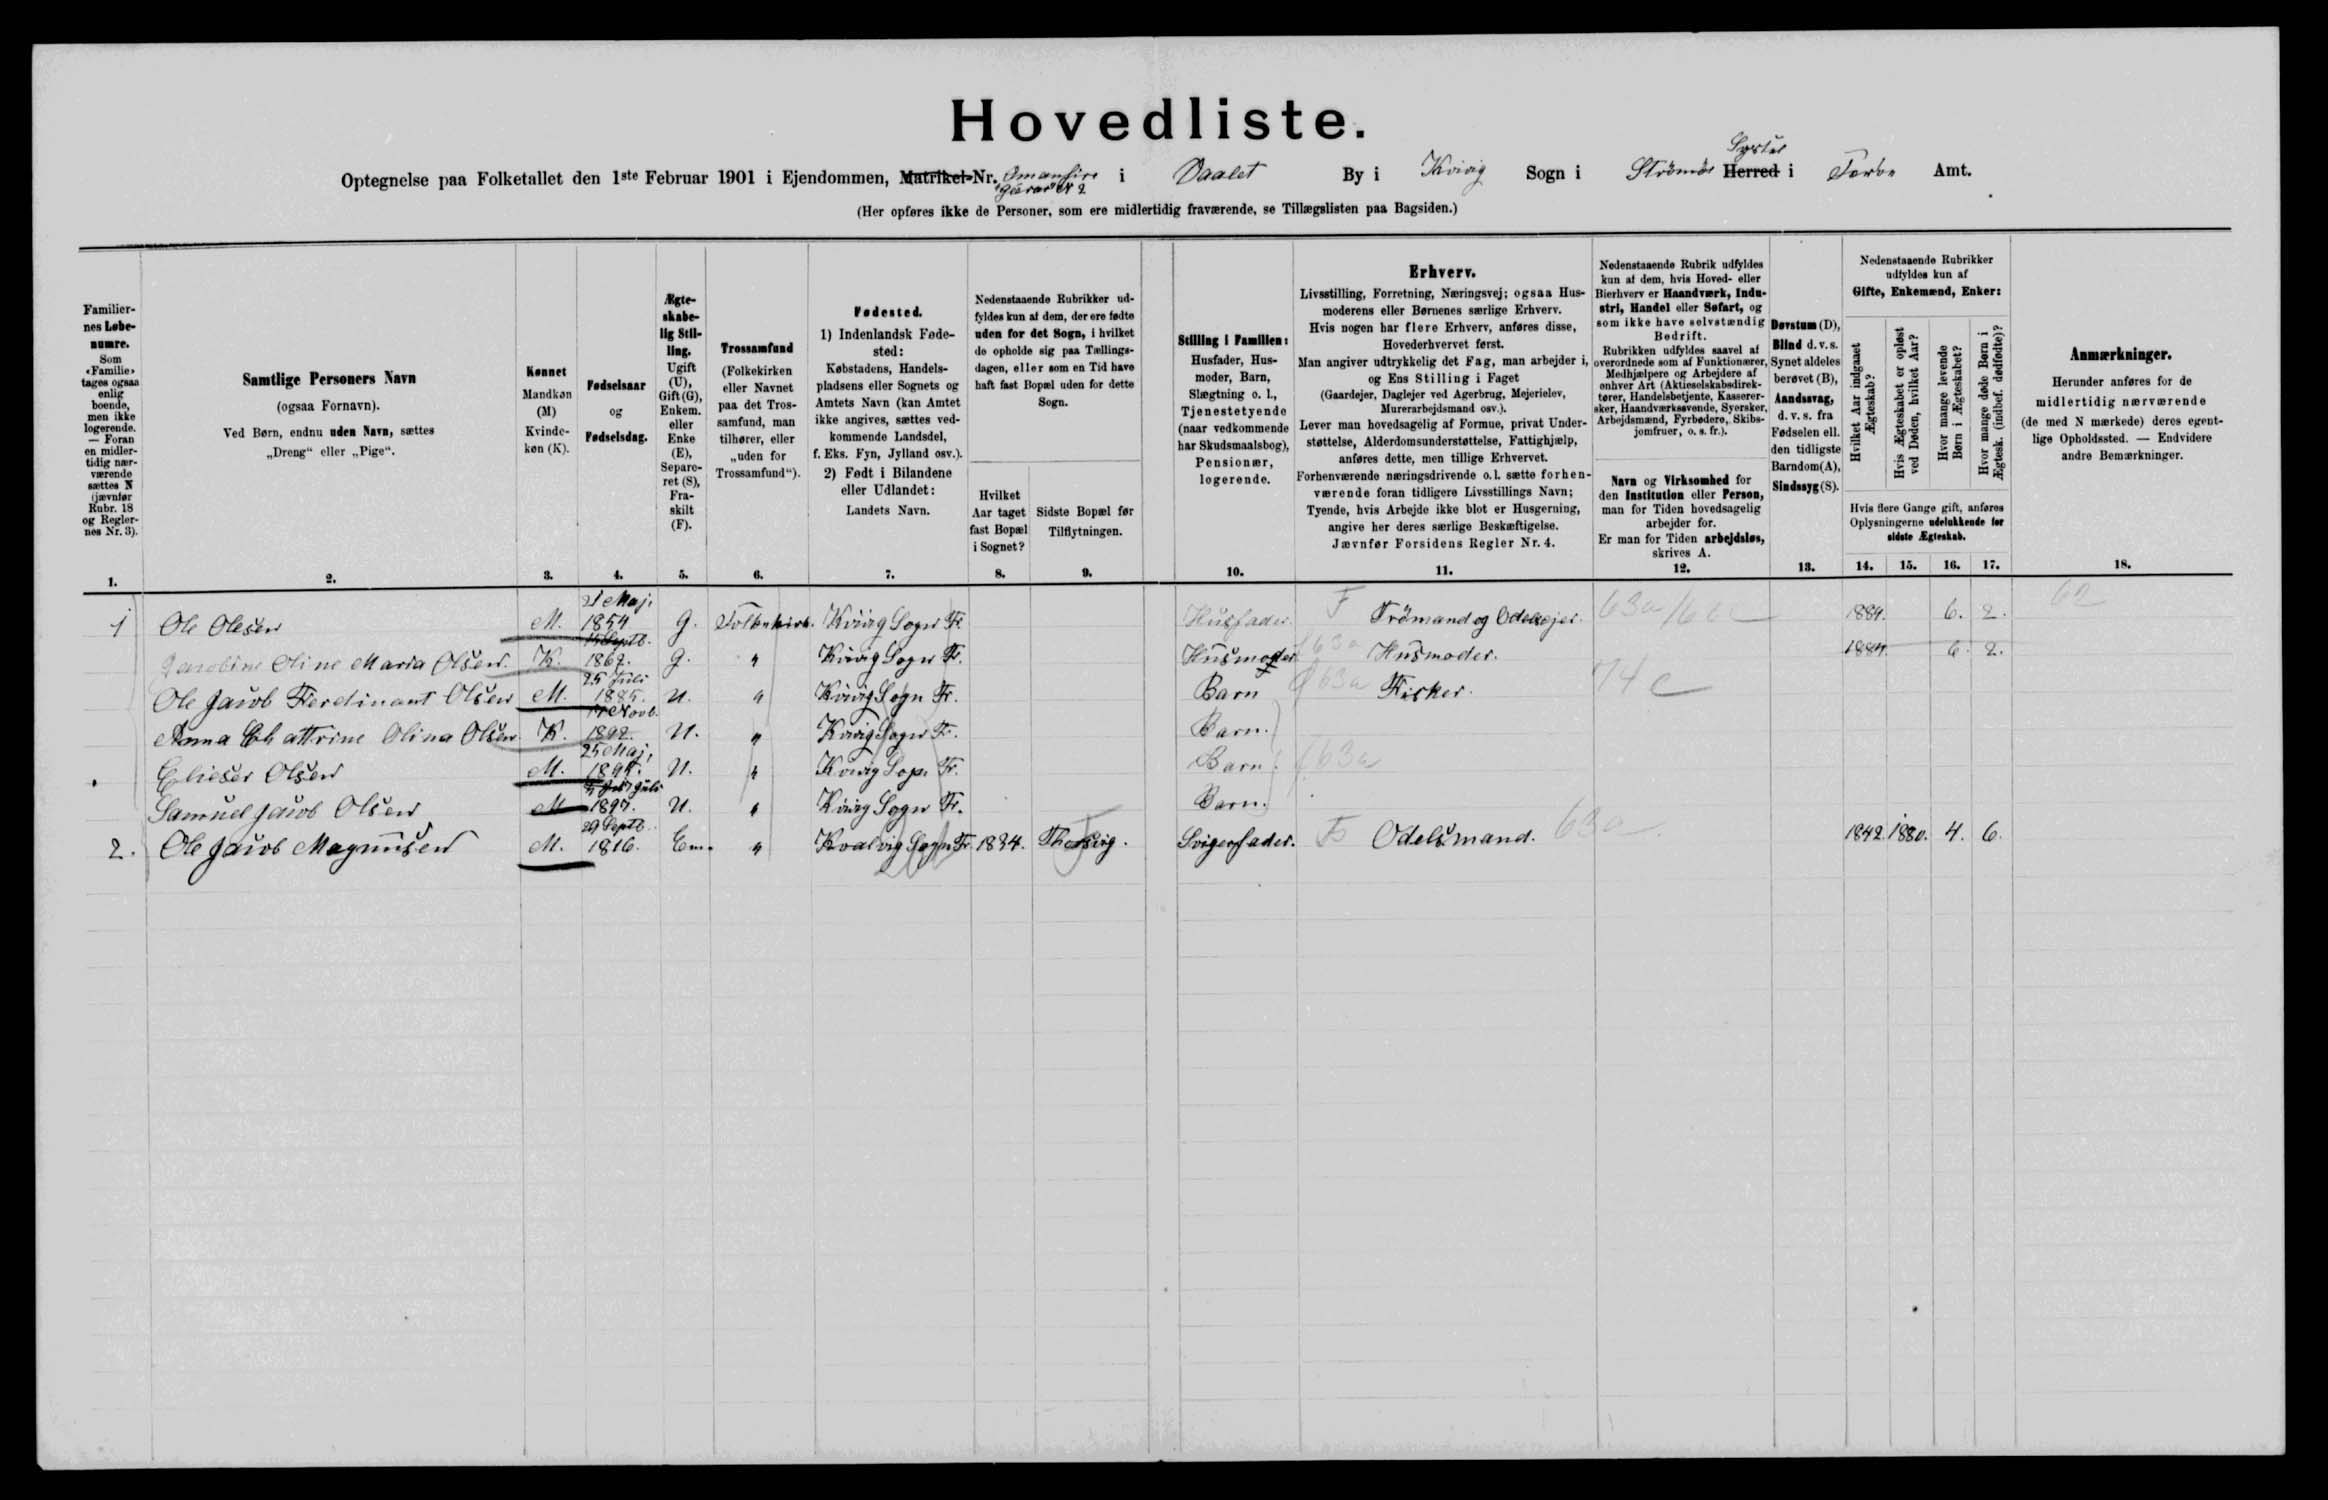 Hovedliste.
Optegnelse paa Folketallet den 1ste Februar 1901 i Ejendommen, Matrikel-Nr. "Omanfire Garar" N 2 i Vaalet By i Kvivig Sogn i Strömös Herred Syssel i Færöe Amt.
(Her opføres ikke de Personer, som ere midlertidig fraværende, se Tillægslisten paa Bagsiden.)
Familiernes Løbenumre. Som «Familie» tages ogsaa enlig boende, men ikke logerende. — Foran en midlertidig nærværende sættes N (jævnfør Rubr. 18 og Reglernes Nr. 3).
Samtlige Personers Navn (ogsaa Fornavn). Ved Børn, endnu uden Navn, sættes „Dreng“ eller „Pige“.
Kønnet Mandkøn (M) Kvindekøn (K).
Fødselsaar og Fødselsdag.
Ægteskabelig Stilling. Ugift (U), Gift (G), Enkem. eller Enke (E), Separeret (S), Fraskilt (F).
Trossamfund (Folkekirken eller Navnet paa det Trossamfund, man tilhører, eller „uden for Trossamfund“).
Fødested. 1) Indenlandsk Fødested: Købstadens, Handelspladsens eller Sognets og Amtets Navn (kan Amtet ikke angives, sættes vedkommende Landsdel, f. Eks. Fyn, Jylland osv.). 2) Født i Bilandene eller Udlandet: Landets Navn.
Nedenstaaende Rubrikker udfyldes kun af dem, der ere fødte uden for det Sogn, i hvilket de opholde sig paa Tællingsdagen, eller som en Tid have haft fast Bopæl uden for dette Sogn.
Hvilket Aar taget fast Bopæl i Sognet?
Sidste Bopæl før Tilflytningen.
Stilling i Familien: Husfader, Husmoder, Barn, Slægtning o. l., Tjenestetyende (naar vedkommende har Skudsmaalsbog), Pensionær, logerende.
Erhverv. Livsstilling, Forretning, Næringsvej; ogsaa Husmoderens eller Børnenes særlige Erhverv. Hvis nogen har flere Erhverv, anføres disse, Hovederhvervet først. Man angiver udtrykkelig det Fag, man arbejder i, og Ens Stilling i Faget (Gaardejer, Daglejer ved Agerbrug, Mejerielev, Murerarbejdsmand osv.). Lever man hovedsagelig af Formue, privat Understøttelse, Alderdomsunderstøttelse, Fattighjælp, anføres dette, men tillige Erhvervet. Forhenværende næringsdrivende o. l. sætte forhenværende foran tidligere Livsstillings Navn; Tyende, hvis Arbejde ikke blot er Husgerning, angive her deres særlige Beskæftigelse. Jævnfør Forsidens Regler Nr. 4.
Nedenstaaende Rubrik udfyldes kun af dem, hvis Hoved- eller Bierhverv er Haandværk, Industri, Handel eller Søfart, og som ikke have selvstændig Bedrift. Rubrikken udfyldes saavel af overordnede som af Funktionærer, Medhjælpere og Arbejdere af enhver Art (Aktieselskabsdirektører, Handelsbetjente, Kasserersker, Haandværkssvende, Syersker, Arbejdsmænd, Fyrbødere, Skibsjomfruer, o. s. fr.).
Navn og Virksomhed for den Institution eller Person, man for Tiden hovedsagelig arbejder for. Er man for Tiden arbejdsløs, skrives A.
Døvstum (D), Blind d. v. s. Synet aldeles berøvet (B), Aandssvag, d. v. s. fra Fødselen ell. den tidligste Barndom (A), Sindssyg (S).
Nedenstaaende Rubrikker udfyldes kun af Gifte, Enkemænd, Enker:
Hvilket Aar indgaaet Ægteskab?
Hvis Ægteskabet er opløst ved Døden, hvilket Aar?
Hvor mange levende Børn i Ægteskabet?
Hvor mange døde Børn i Ægtesk. (indbef. dødfødte)?
Hvis flere Gange gift, anføres Oplysningerne udelukkende for sidste Ægteskab.
Anmærkninger. Herunder anføres for de midlertidig nærværende (de med N mærkede) deres egentlige Opholdssted. — Endvidere andre Bemærkninger.
1. 2. 3. 4. 5. 6. 7. 8. 9. 10. 11. 12. 13. 14. 15. 16. 17. 18.
1 Ole Olesen M. 21 Maj, 1854 G. Folkekirk. Kvivig Sogn Fr. Husfader. F Tømand og Odelsejer. 63a/66c 1884. 6. 2. 62
Jacobine Oline Maria Olsen. K. 15 Septb. 1862. G. " Kvivig Sogn Fr. Husmoder 63a Husmoder. 1884. 6. 2.
Ole Jacob Ferdinant Olsen M. 25 Juli 1885. U. " Kvivig Sogn Fr. Barn 63a Fisker. 74c
Anna Chattrine Olina Olsen K. 17 Novb. 1892. U. " Kvivig Sogn Fr. Barn.
Elieser Olsen M. 25 Maj, 1894. U. " Kvivig Sogn Fr. Barn. 63a
Samuel Jacob Olsen M 5 Juli 1897. U. " Kvivig Sogn Fr. Barn.
2. Ole Jacob Magnusen M. 29 Septb. 1816. Em. " Kvalvig Sogn Fr. 1834. Svigerfader. Fo Odelsmand. 63a 1842. 1880. 4. 6.